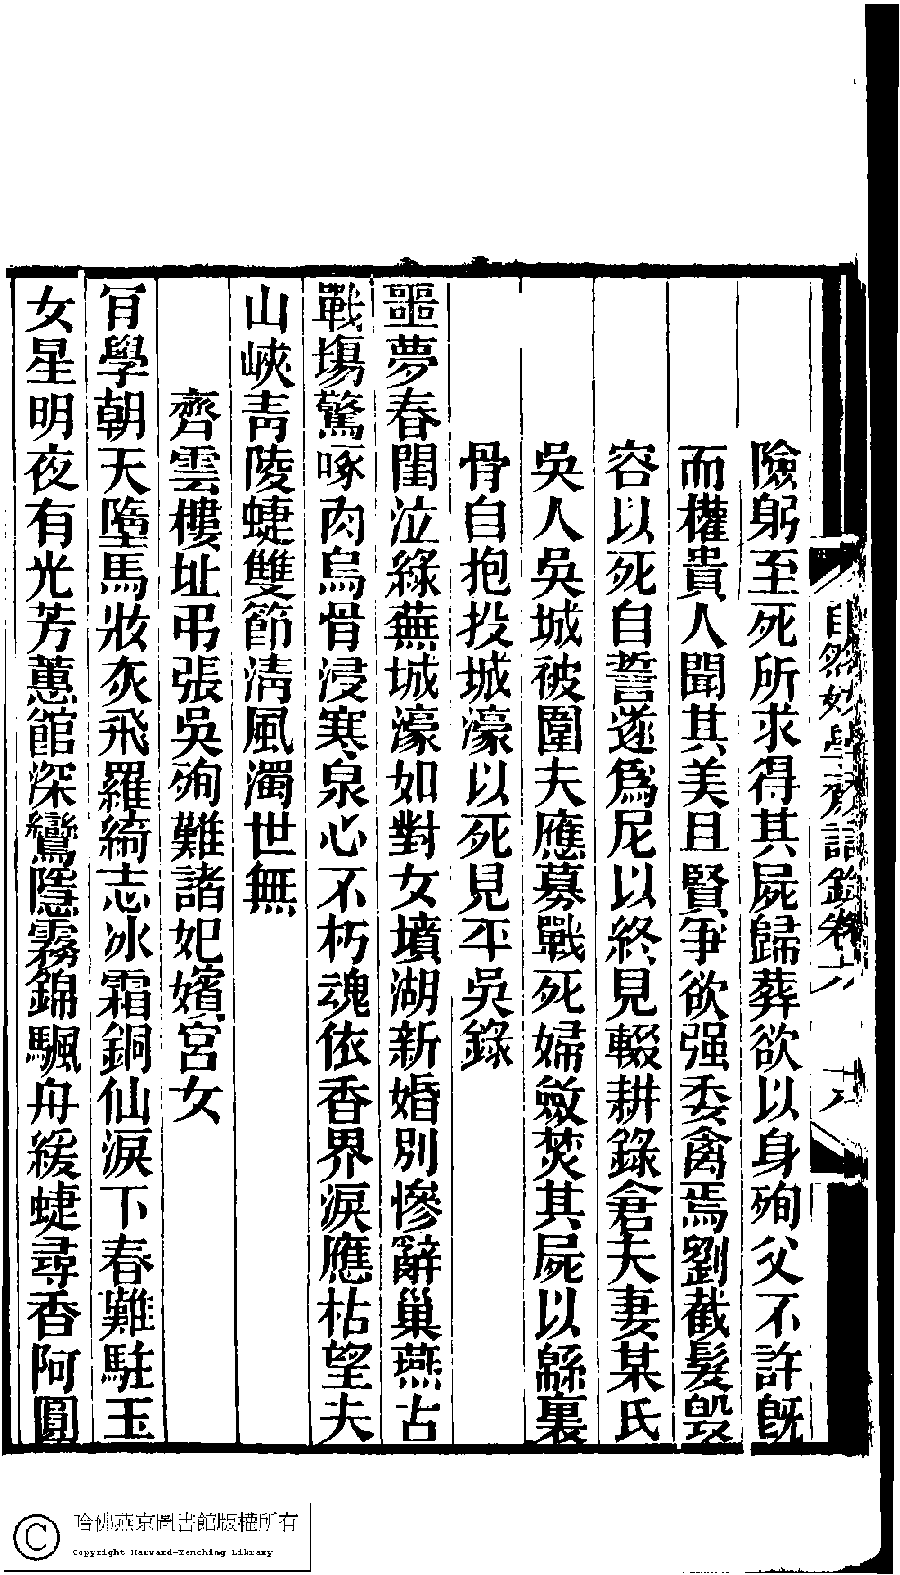 險躬至死所求得其屍歸葬欲以身殉父不許旣
而權貴人聞其美且賢爭欲强委禽焉劉截髮毀
容以死自誓遂爲尼以終見輟耕錄倉夫妻某氏
吳人吳城被圍夫應募戰死婦斂焚其屍以緜裹
骨自抱投城濠以死見平吳錄
噩夢春閨泣綠蕪城濠如對女墳湖新婚別慘辭巢燕古
戰塲驚啄肉烏骨浸寒泉心不朽魂依香界淚應枯望夫
山峽靑陵蜨雙節淸風濁世無
齊雲樓址弔張吳殉難諸妃嬪宮女
肯學朝天墮馬妝灰飛羅綺志冰霜銅仙淚下春難駐玉
女星明夜有光芳蕙館深鸞隱霧錦颿舟緩蜨尋香阿圓
自然好學齋詩鈔卷六
哈佛燕京圖書館版權所有
Copyright Harvard-Yenching Library